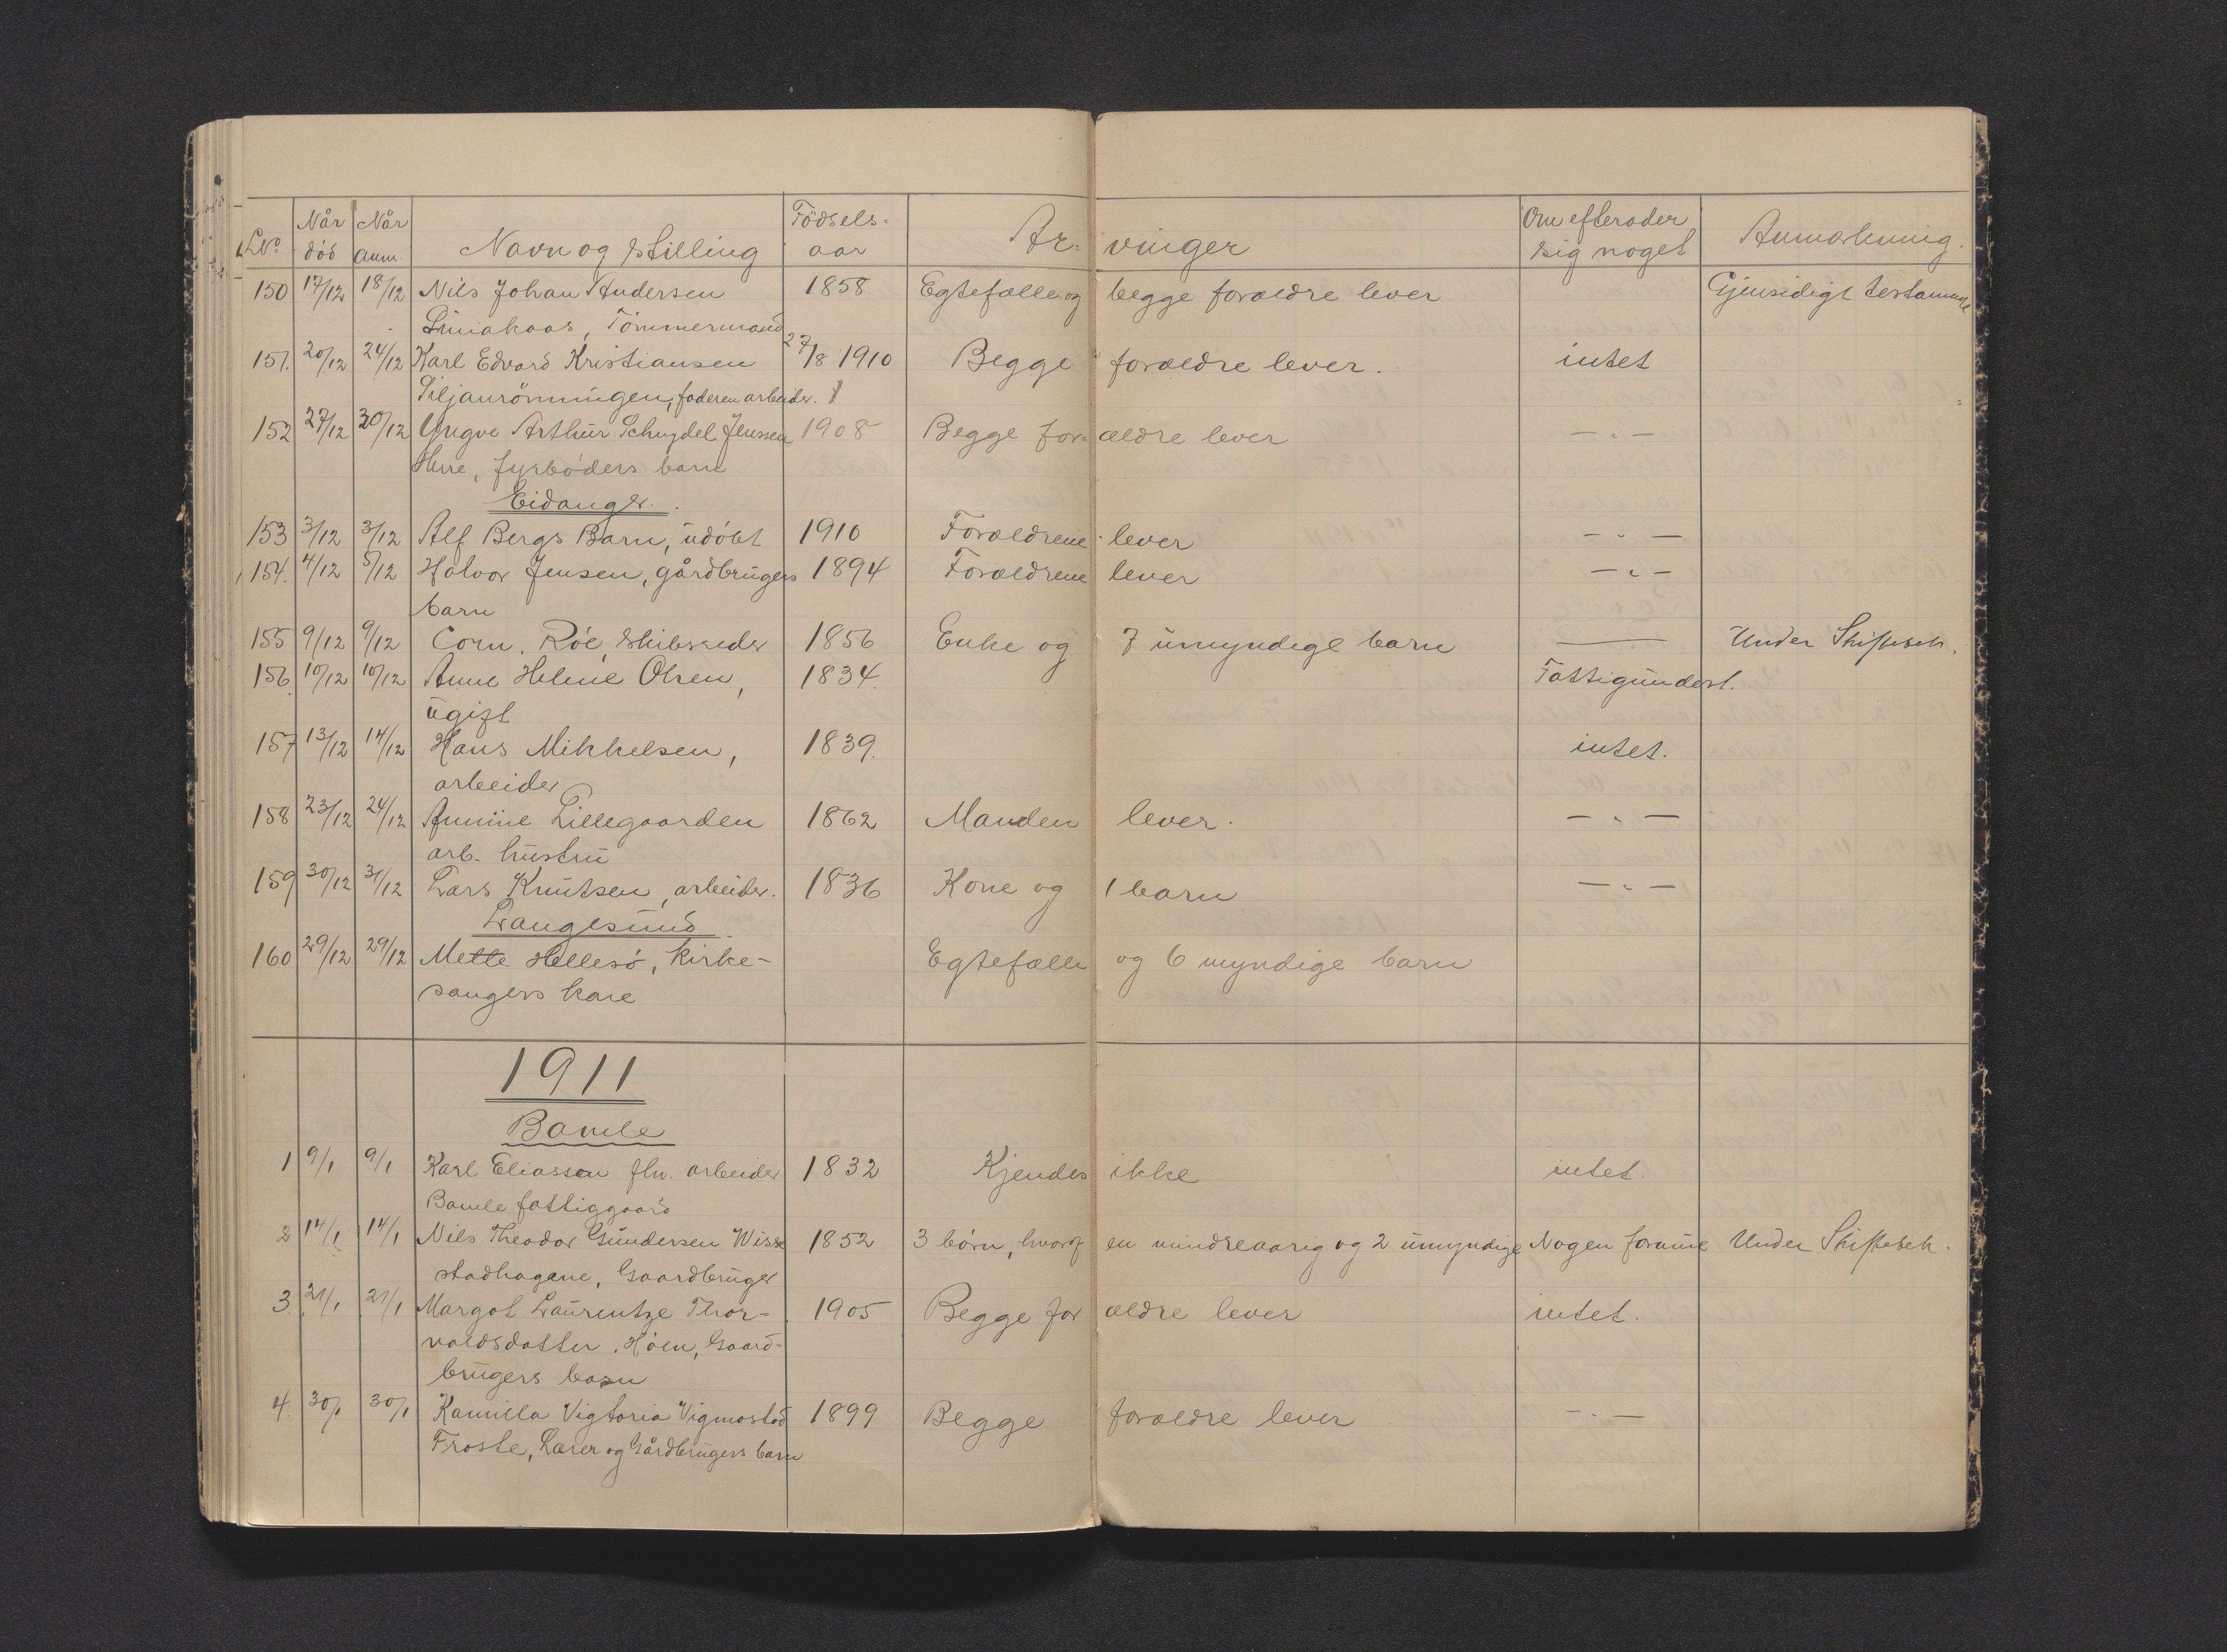 LNo. Når død Når anm. Navn og Stilling Födsels-aar Ar- vinger Om efterader sig noget Anmærkning.
150 17/12 18/12 Nils Johan Andersen 1858 Egtefælle og begge forældre lever Gjensidigt testamente
Tömmermand
151. 20/12 24/12 Karl Edvard Kristiansen 27/8 1910 Begge forældre lever. intet
faderen arbeider.
152 27/12 30/12 Yngve Arthur Schydel Jenssen 1908 Begge for- ældre lever — " —
Herre, fyrbøders barn
Eidanger.
153 3/12 3/12 Alf Bergs Barn, udøbt 1910 Forældrene lever — " —
154. 4/12 5/12 Halvor Jensen, gårdbrugers 1894 Forældrene lever — " —
barn
155 9/12 9/12 Corn. Röe, skibsreder 1856 Enke og 7 umyndige barn — Under Skiftebeh.
156. 10/12 10/12 Anne Helene Olsen, 1834. Fattigunderst.
ugift
157 13/12 14/12 Hans Mikkelsen, 1839. intet.
arbeider
158 23/12 24/12 Annine Lillegaarden 1862 Manden lever. — " —
arb. hustru
159 30/12 31/12 Lars Knutsen, arbeider. 1836 Kone og 1 barn — " —
Langesund
160 29/12 29/12 Mette Hellesö, Kirke- Egtefælle og 6 myndige barn
sangers kone
1911
Bamle
1 9/1 9/1 Karl Eliassen fhv. arbeider 1832 Kjendes ikke intet.
Bamle fattiggaard
2 14/1 14/1 Nils Theodor Gundersen Wisse 1852 3 börn, hvoraf en mindreaarig og 2 umyndige Nogen formue Under Skiftebeh.
stadhagane, Gaardbruger
3. 21/1 21/1 Margot Laurentze Thor- 1905 Begge for ældre lever intet.
valdsdatter. Höen, Gaard-
brugers barn
4. 30/1 30/1 Kamilla Vigtoria Vigmostad 1899 Begge forældre lever — " —
Froste, Lærer og Gårdbrugers barn